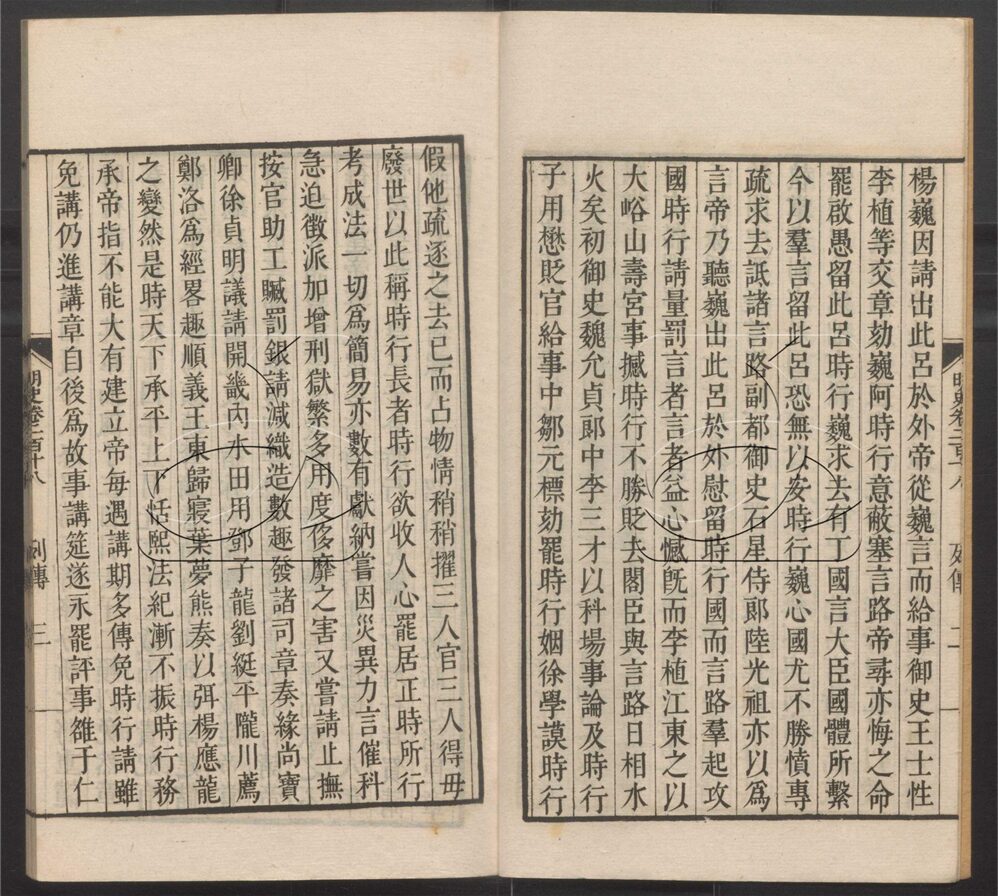 楊巍因請出此呂於外帝從巍言而給事御史王士性
李植等交章劾巍阿時行意蔽塞言路帝尋亦悔之命
罷啟愚留此呂時行巍求去有丁國言大臣國體所繫
今以羣言留此呂恐無以安時行巍心國尤不勝憤專
疏求去詆諸言路副都御史石星侍郞陸光祖亦以爲
言帝乃聽巍出此呂於外慰留時行國而言路羣起攻
國時行請量罰言者言者益心憾旣而李植江東之以
大峪山壽宮事撼時行不勝貶去閣臣與言路日相水
火矣初御史魏允貞郞中李三才以科場事論及時行
子用懋貶官給事中鄒元標劾罷時行姻徐學謨時行
明史卷二百十八 列傳 二
假他疏逐之去已而占物情稍稍擢三人官三人得毋
廢世以此稱時行長者時行欲收人心罷居正時所行
考成法一切爲簡易亦數有獻納嘗因災異力言催科
急迫徵派加增刑獄繁多用度侈靡之害又嘗請止撫
按官助工贓罰銀請減織造數趣發諸司章奏緣尚寶
卿徐貞明議請開畿內水田用鄧子龍劉綎平隴川薦
鄭洛爲經畧趣順義王東歸寢葉夢熊奏以弭楊應龍
之變然是時天下承平上下恬熙法紀漸不振時行務
承帝指不能大有建立帝每遇講期多傳免時行請雖
免講仍進講章自後爲故事講筵遂永罷評事雒于仁
明史卷二百十八 列傳 三